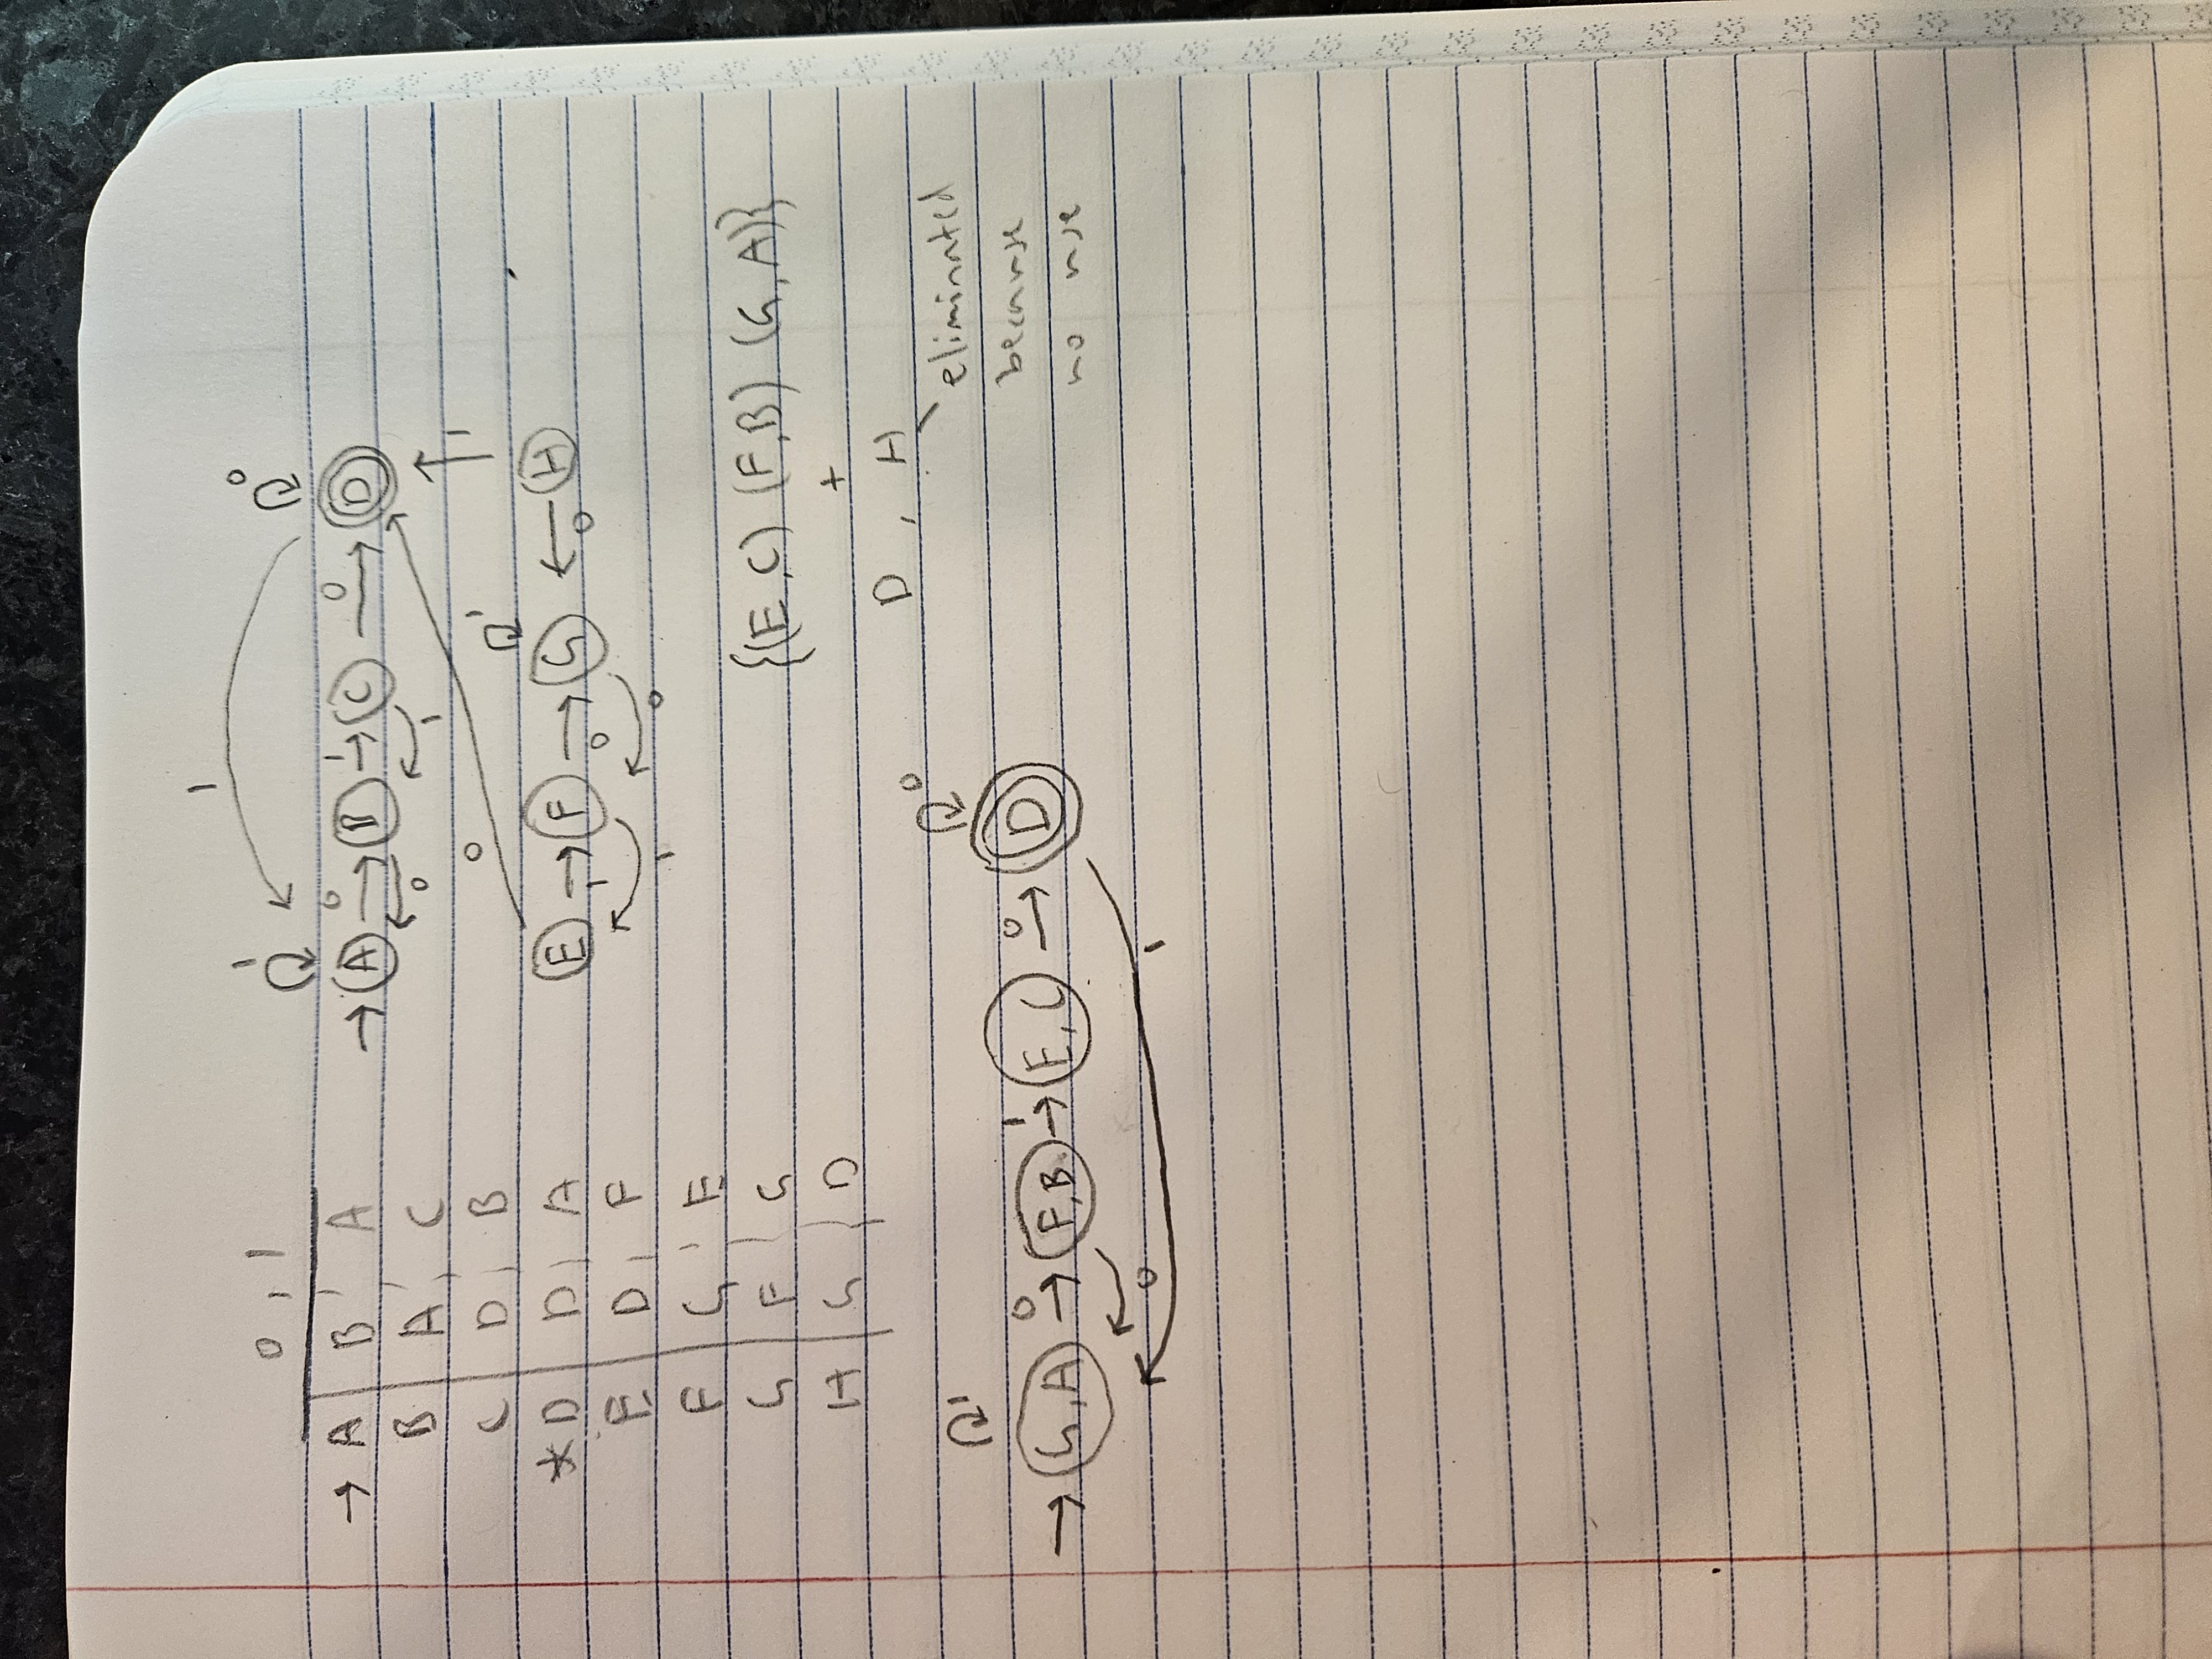 0 , 1
→ A | B , A
B | A , C
C | D , B
* D | D , A
E | D , F
F | G , E
G | F , G
H | G , D
1
1 0
0 1 0
→ A → B → C → D
0 1
0 1 1
E → F → G ← H
1 0 0
1 0
{(E,C) (F,B) (G,A)}
+
D , H
eliminated
because
no use
1 0
0 1 0
→ G,A → F,B → E,C → D
0 1